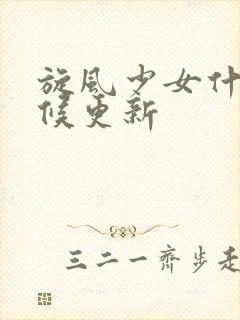 旋風少女什
候更新
三二一齊步走